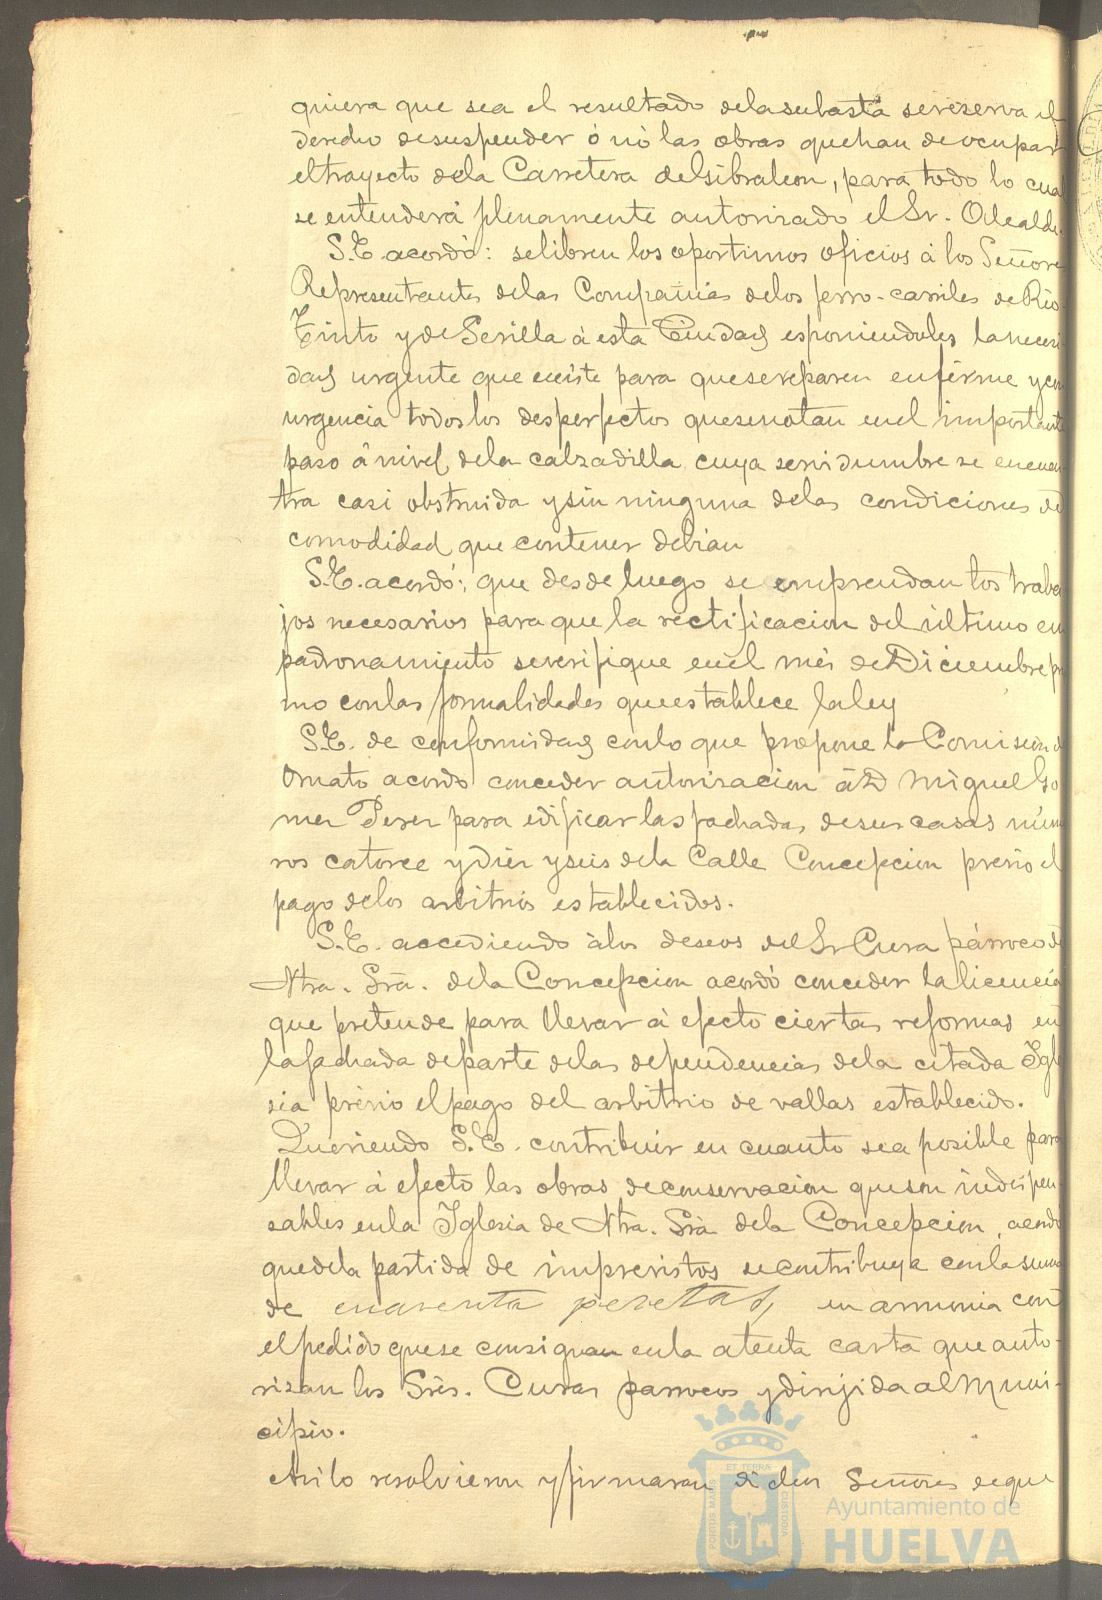 quiera que sea el resultado dela subasta sereserva el
derecho desuspender ó nó las obras quehan deocupar
eltrayecto dela Carretera deGibraleon, para todo lo cual
se entenderá plenamente autorizado el Sr. Alcalde.
S.E. acordó: selibren los oportunos oficios á los Señore
Representantes delas Compañias delos ferro-carriles de Rio-
Tinto y de Sevilla á esta Ciudad esponiendoles lanecesi
dad urgente que existe para quesereparen enfirme ycon
urgencia todoslos desperfectos quesenotan enel important
paso á nivel dela calzadilla cuya servidumbre se encuen
tra casi obstruida ysin ninguna delas condiciones de
comodidad que contener debian
S.E. acordó: que desde luego se emprendan los traba
jos necesarios para que la rectificacion del último em
padronamiento severifique enel més de Diciembre pr
mo conlas formalidades queestablece laley
S.E. de conformidad conlo que propone la Comision d
Ornato acordo conceder autorizacion á D Miguel Go
mez Perez para edificar las fachadas desus casas núm
ros catorce ydiez yseis dela Calle Concepcion previo el
pago delos arbitrios establecidos.
S.E. accediendo álos deseos del Sr Cura párroco d
Ntra. Srã. dela Concepcion acordó conceder la licencia
que pretende para llevar á efecto ciertas reformas en
lafachada departe delas dependencias dela citada Igle
sia prévio elpago del arbitrio de vallas establecido.
Queriendo S.E. contribuir en cuanto sea posible para
llevar á efecto las obras deconservacion queson indispen
sables enla Iglesia de Ntra. Srã dela Concepcion, acordó
quedela partida de imprevistos secontribuya conlasuma
de cuarenta pesetas, en armonia con
elpedido quese consignan enla atenta carta que auto-
rizan los Sres. Curas parrocos ydirijida al Muni-
cipio.
Asi lo resolvieron yfirmaran dichos Señores deque
PORTUS MARIS ET TERRÆ CUSTODIA
Ayuntamiento de
HUELVA